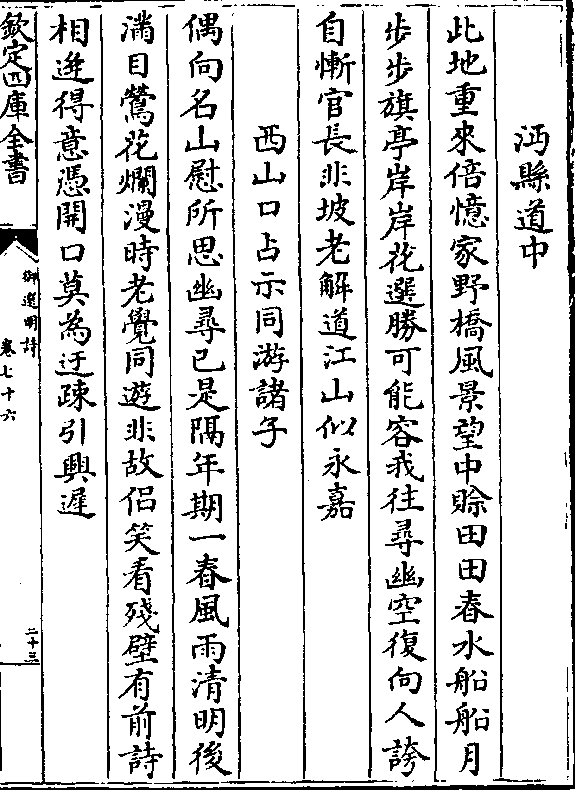 沔縣道中
此地重來倍憶家野橋風景望中賒田田春水船船月
步步旗亭岸岸花選勝可能容我往尋幽空復向人誇
自慚官長非坡老解道江山似永嘉
西山口占示同游諸子
偶向名山慰所思幽尋已是隔年期一春風雨清明後
滿目鶯花爛漫時老覺同遊非故侣笑看殘壁有前詩
相逢得意憑開口莫為迂疎引興遲
欽定四庫全書
御選明詩
卷七十六
二十三